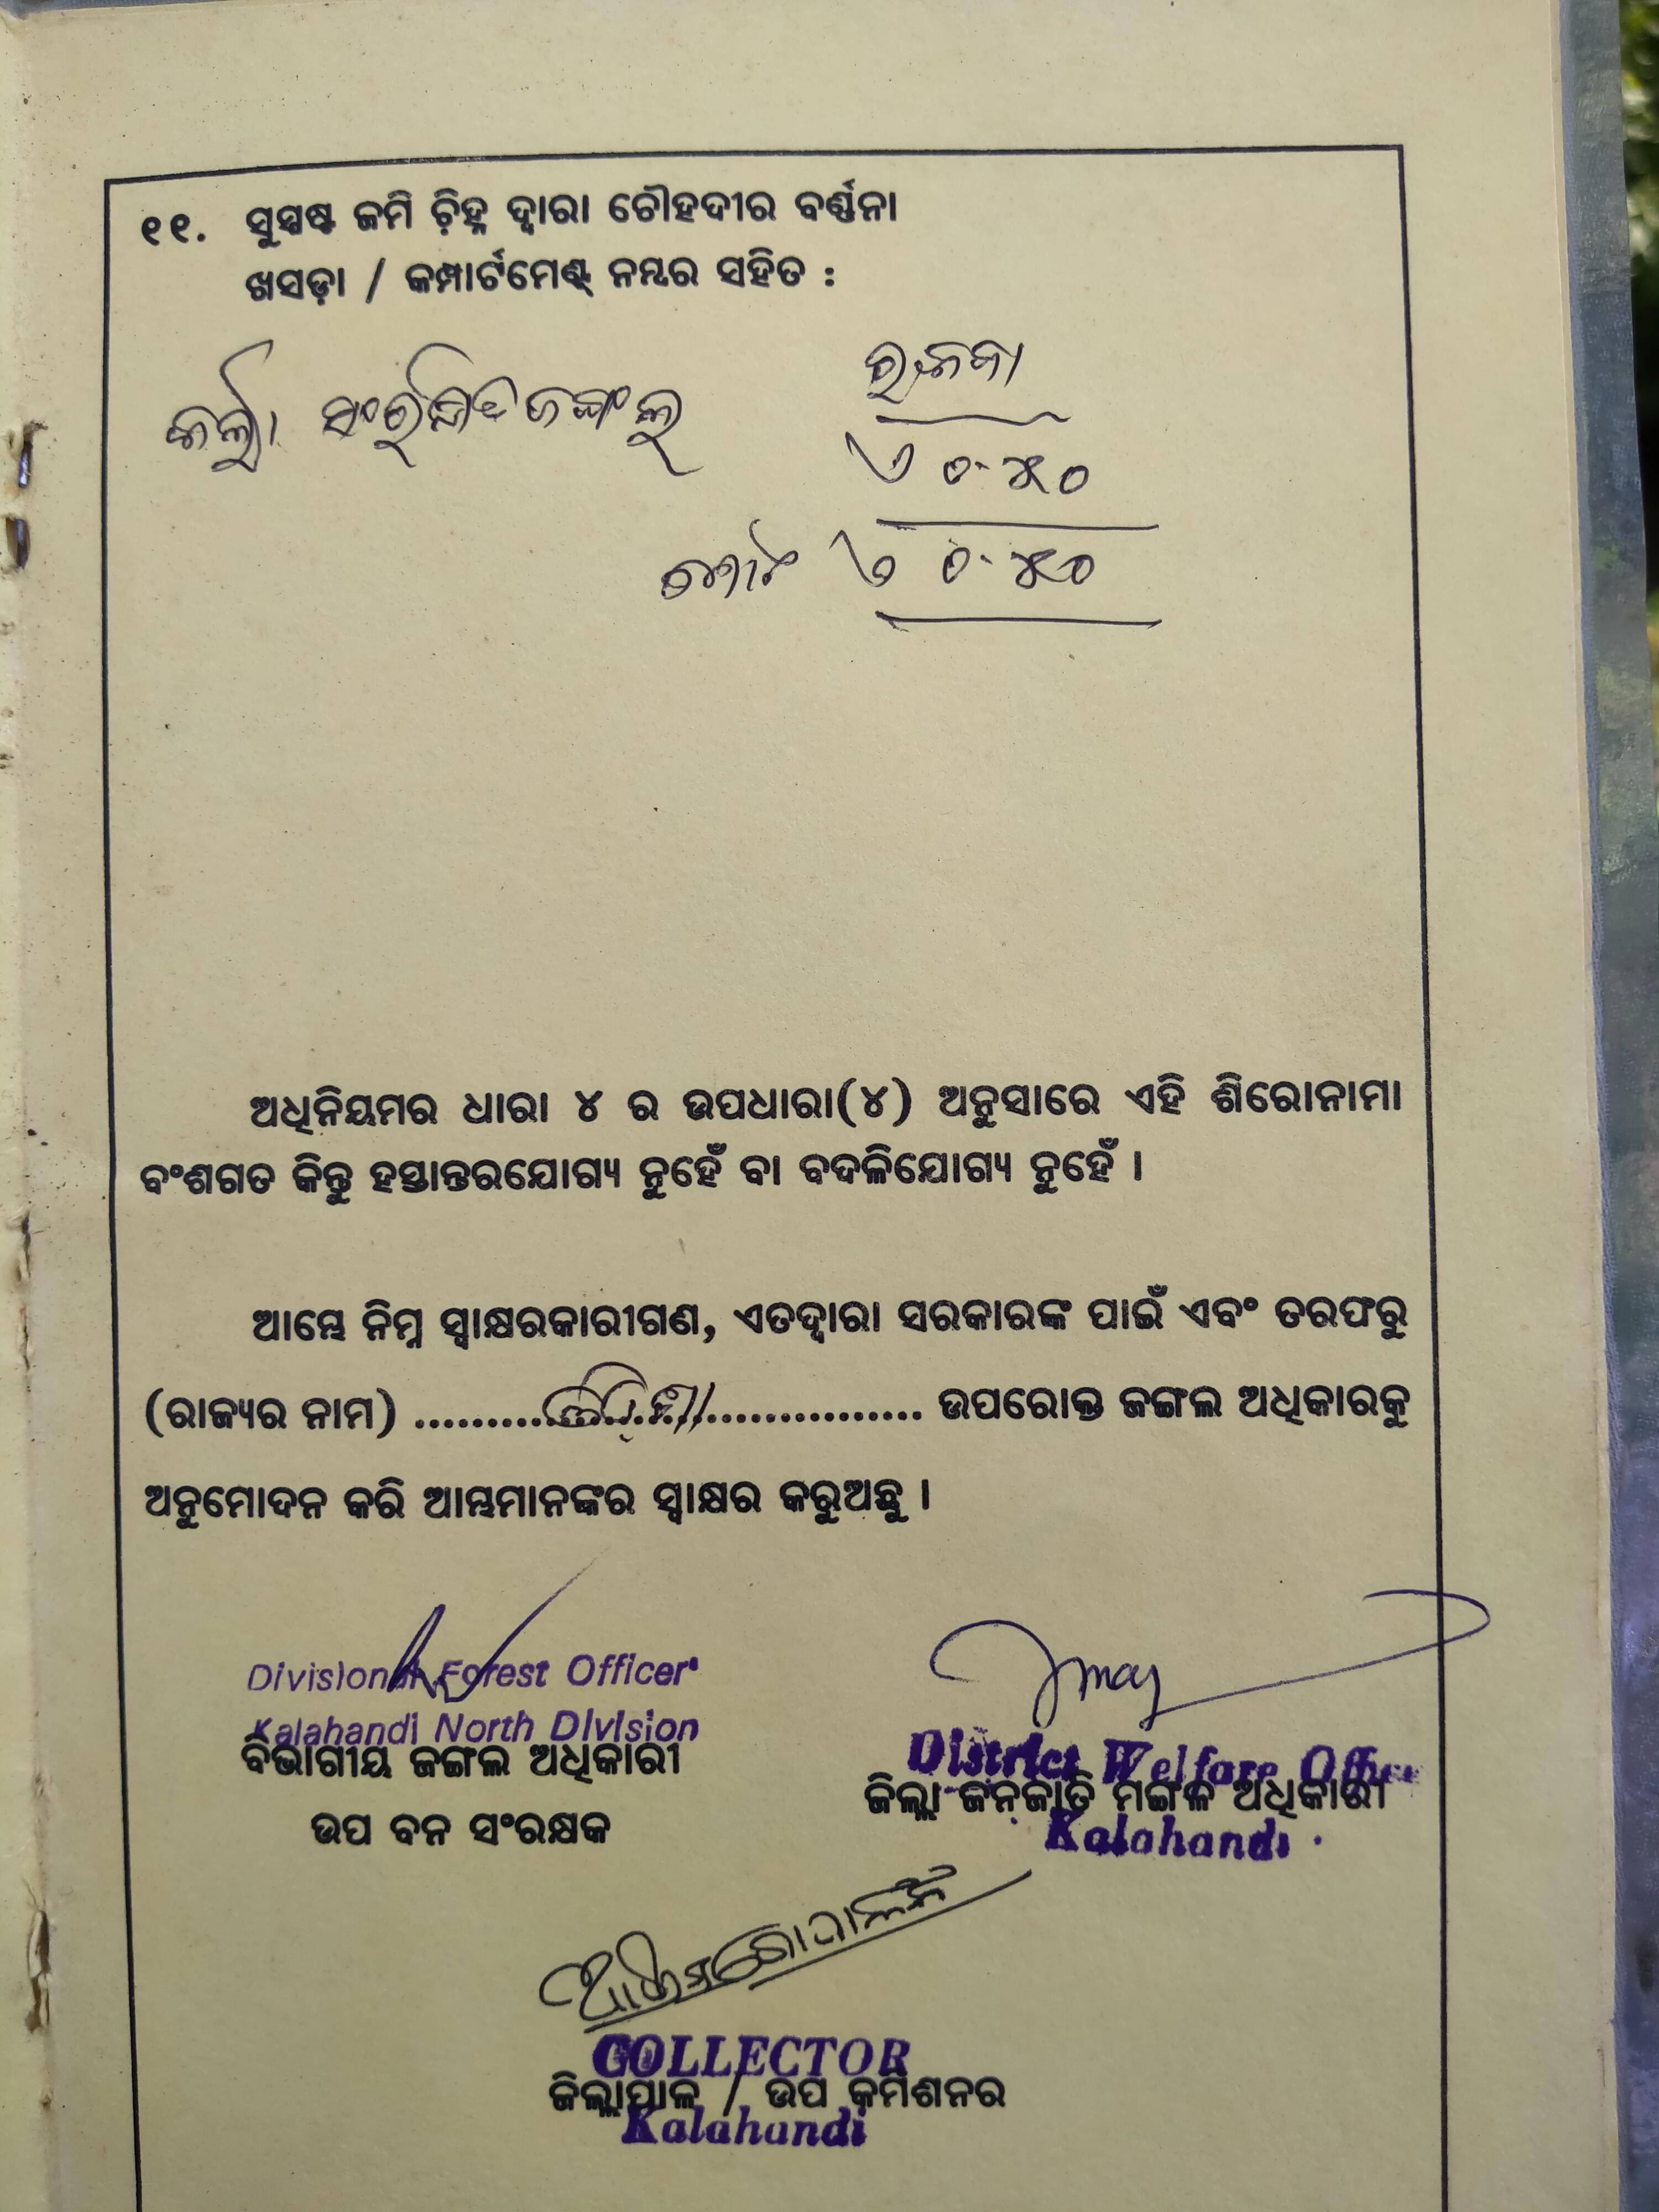 ୧୧. ସୁସ୍ପଷ୍ଟ ଜମି ଚ଼ିହ୍ନ ଦ୍ୱାରା ଚୌହଦୀର ବର୍ଣ୍ଣନା
ଖସଡ଼ା / କମ୍ପାର୍ଟମେଣ୍ଟ୍ ନମ୍ବର ସହିତ :
ସଂରକ୍ଷିତ ଜଙ୍ଗଲ
୦.୫୦
ମୋଟ ୦.୫୦
ଅଧିନିୟମର ଧାରା ୪ ର ଉପଧାରା(୪) ଅନୁସାରେ ଏହି ଶିରୋନାମା
ବଂଶଗତ କିନ୍ତୁ ହସ୍ତାନ୍ତରଯୋଗ୍ୟ ନୁହେଁ ବା ବଦଳିଯୋଗ୍ୟ ନୁହେଁ ।
ଆମ୍ଭେ ନିମ୍ନ ସ୍ୱାକ୍ଷରକାରୀଗଣ, ଏତଦ୍ୱାରା ସରକାରଙ୍କ ପାଇଁ ଏବଂ ତରଫରୁ
(ରାଜ୍ୟର ନାମ) ........ ଓଡ଼ିଶା ........ ଉପରୋକ୍ତ ଜଙ୍ଗଲ ଅଧିକାରକୁ
ଅନୁମୋଦନ କରି ଆମ୍ଭମାନଙ୍କର ସ୍ୱାକ୍ଷର କରୁଅଛୁ ।
Divisional Forest Officer
Kalahandi North Division
ବିଭାଗୀୟ ଜଙ୍ଗଲ ଅଧିକାରୀ
ଉପ ବନ ସଂରକ୍ଷକ
District Welfare Officer
ଜିଲ୍ଲା ଜନଜାତି ମଙ୍ଗଳ ଅଧିକାରୀ
Kalahandi
COLLECTOR
ଜିଲ୍ଲାପାଳ / ଉପ କମିଶନର
Kalahandi